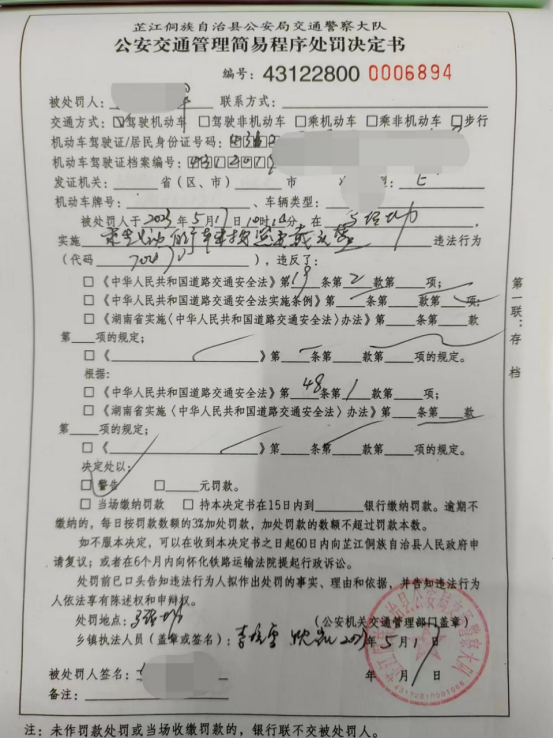 芷江侗族自治县公安局交通警察大队
公安交通管理简易程序处罚决定书
编号：43122800 0006894
被处罚人：____ 联系方式：____
交通方式：☑驾驶机动车 □驾驶非机动车 □乘机动车 □乘非机动车 □步行
机动车驾驶证/居民身份证号码：
机动车驾驶证档案编号：
发证机关：____省（区、市）____市
机动车牌号：____、车辆类型：____
被处罚人于2023年5月17日10时10分，在____，
实施____违法行为
（代码____），违反了：
□《中华人民共和国道路交通安全法》第19条第2款第____项；
□《中华人民共和国道路交通安全法实施条例》第____条第____款第____项；
□《湖南省实施〈中华人民共和国道路交通安全法〉办法》第____条第____款
第____项的规定；
□《____》第____条第____款第____项的规定。
根据：
□《中华人民共和国道路交通安全法》第48条第1款第____项；
□《湖南省实施〈中华人民共和国道路交通安全法〉办法》第____条第____款
第____项的规定；
□《____》第____条第____款第____项的规定。
决定处以：
□ 警告 □____元罚款。
□ 当场缴纳罚款 □ 持本决定书在15日内到____银行缴纳罚款。逾期不
缴纳的，每日按罚款数额的3%加处罚款，加处罚款的数额不超过罚款本数。
如不服本决定，可以在收到本决定书之日起60日内向芷江侗族自治县人民政府申
请复议；或者在6个月内向怀化铁路运输法院提起行政诉讼。
处罚前已口头告知违法行为人拟作出处罚的事实、理由和依据，并告知违法行为
人依法享有陈述权和申辩权。
处罚地点： （公安机关交通管理部门盖章）
乡镇执法人员（盖章或签名）： 2023年5月17日
被处罚人签名： 年 月 日
备注：
注：未作罚款处罚或当场收缴罚款的，银行联不交被处罚人。
第一联：存档